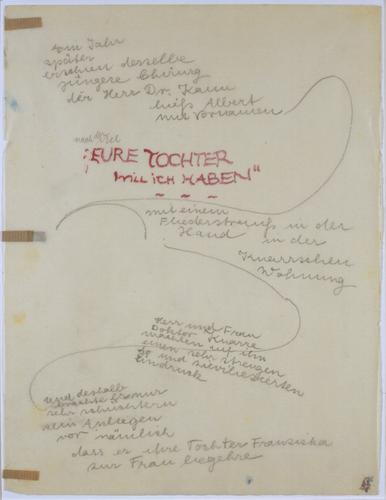 Ein Jahr
später
erschien derselbe
jüngere Chirurg
der Herr Dr. Kann
hieß Albert
mit Vornamen
"EURE TOCHTER
WILL ICH HABEN"
mit einem
Fliederstrauß in der
Hand in der
Knarrschen
Wohnung
Herr und Frau
Doktor Knarre
machten auf ihn
einen sehr strengen
und
Eindruck
und deshalb
brachte er nur
sehr schüchtern
sein Anliegen
vor nämlich
dass er ihre Tochter Franziska
zur Frau begehre